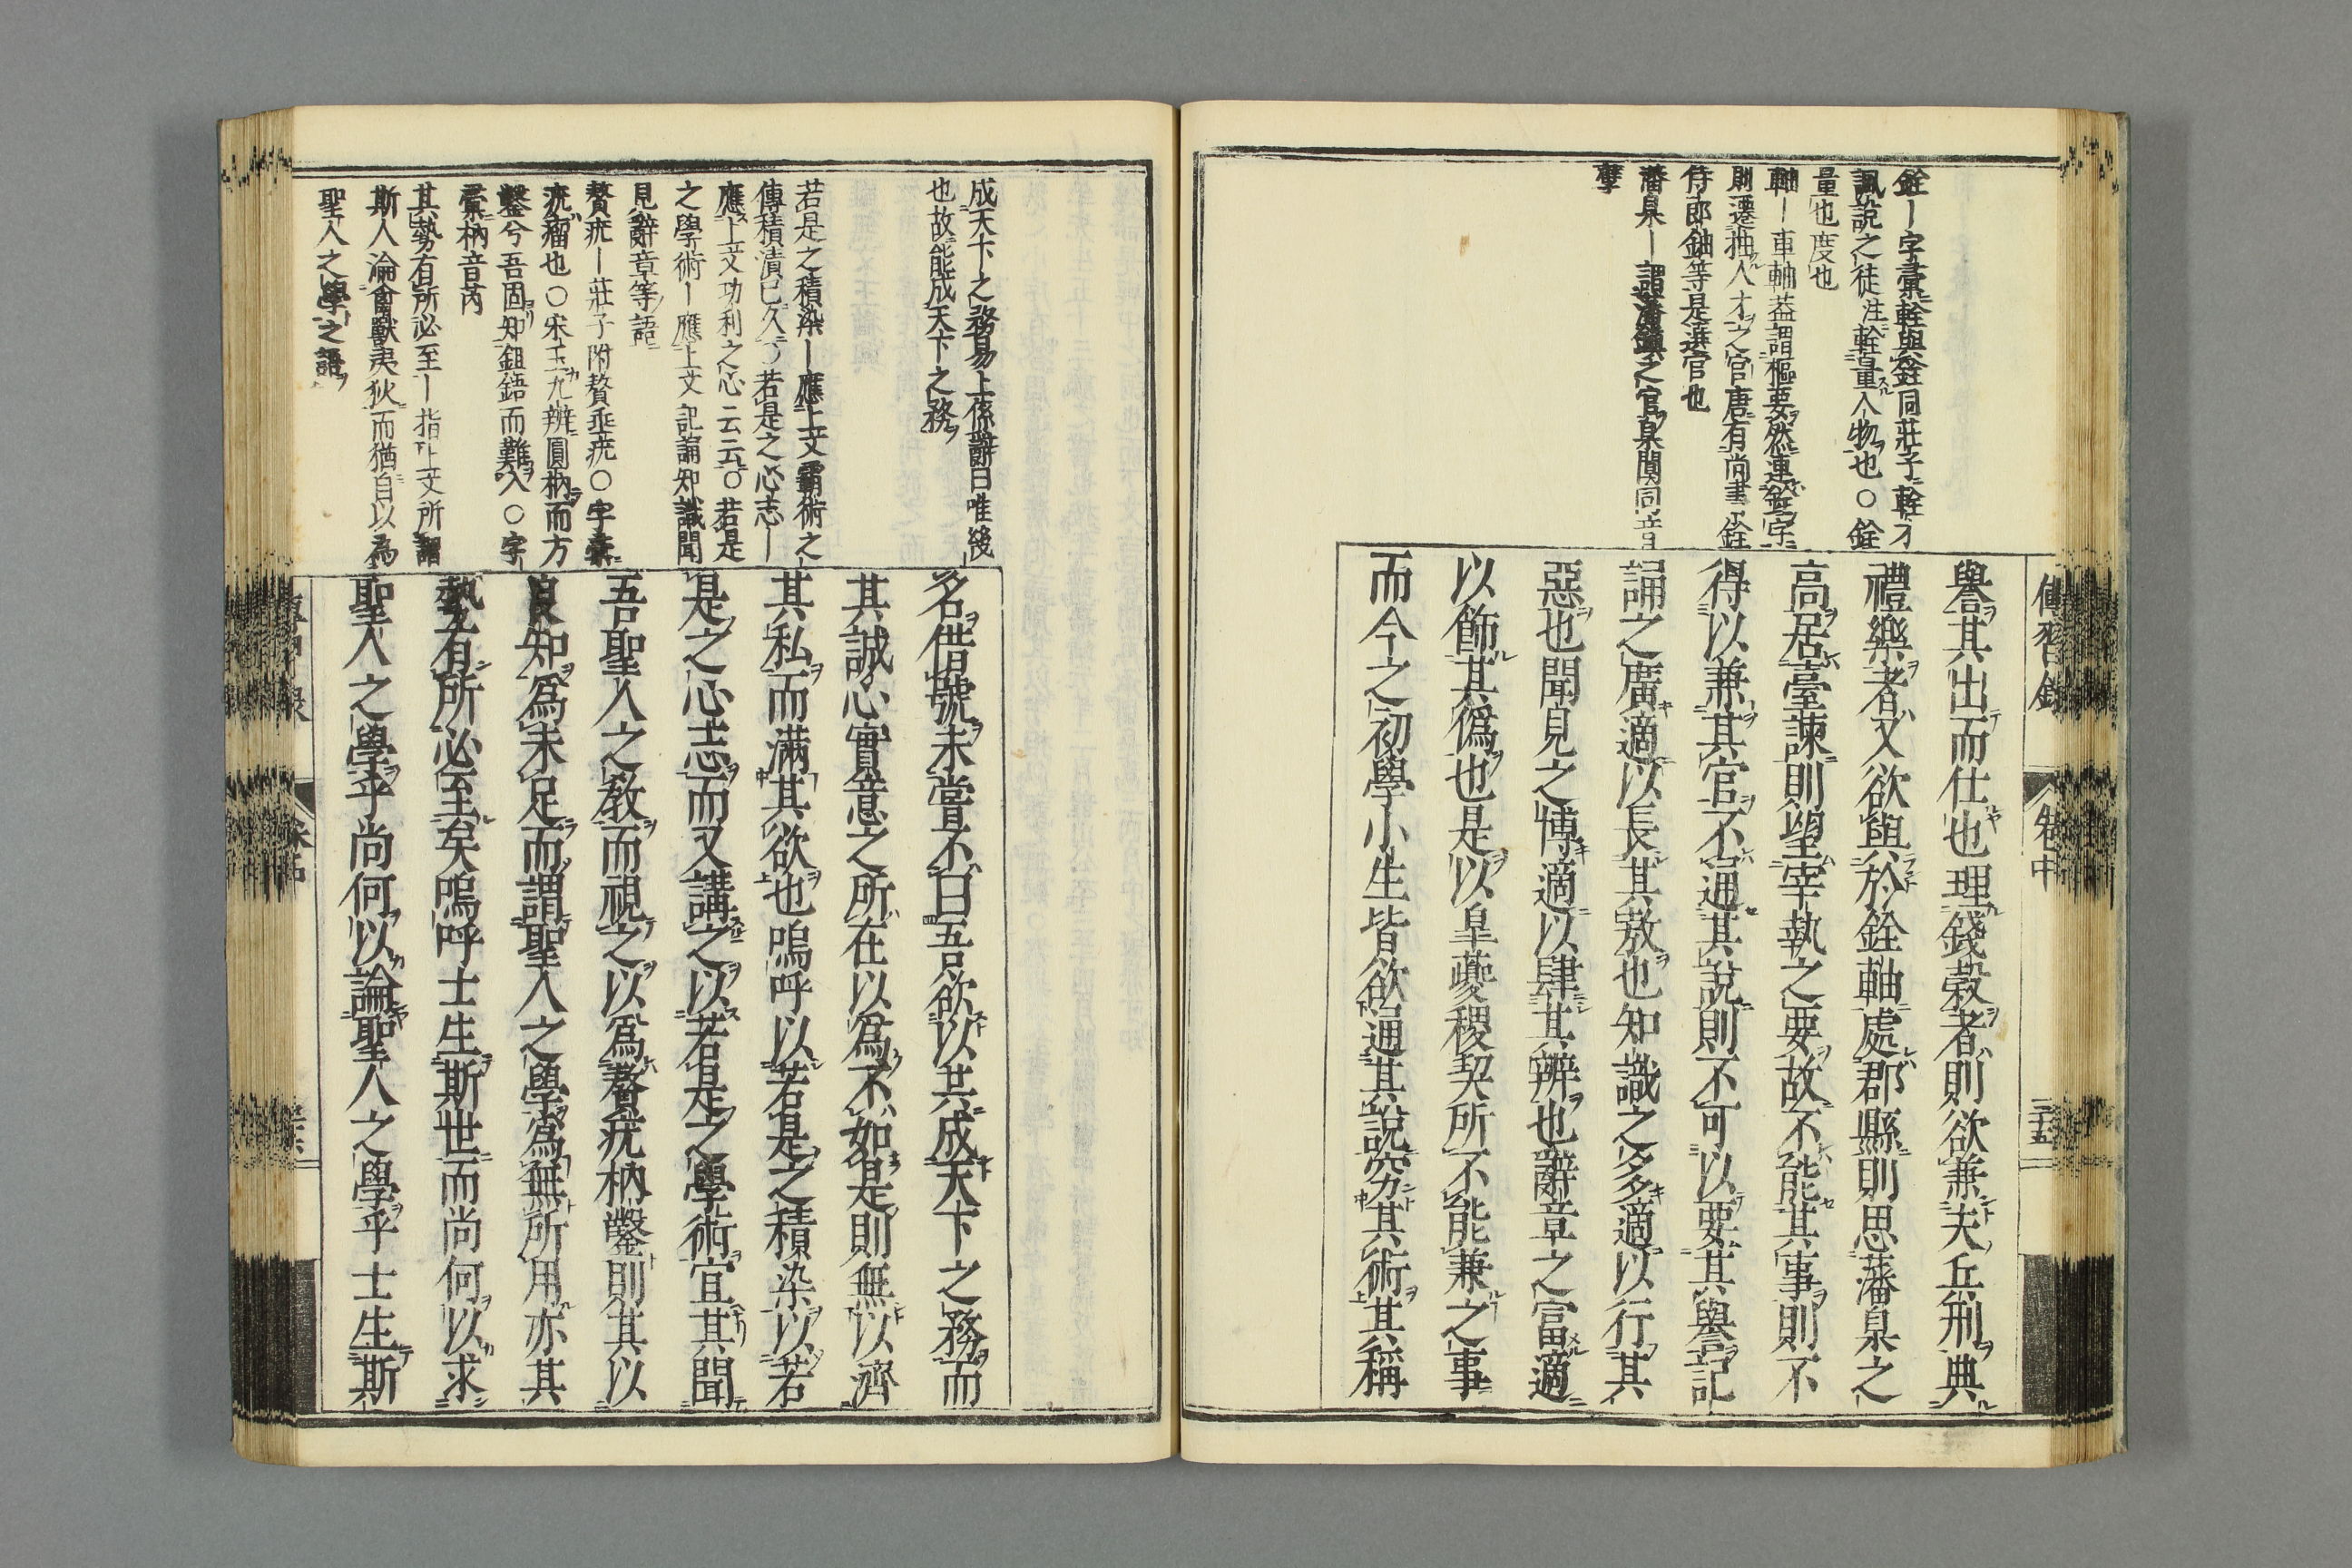 銓ー字彙輇與銓同莊子輇才
諷說之徒注輇量人物也○銓
量也度也
軸ー車軸蓋謂樞要然連銓字
則遷抽人才之官唐有尚書銓
侍郎鈾等是選官也
藩臬ー謂藩鎮之官臬闑同音
孽
傳習錄
卷中
三十五
譽其出而仕也理錢穀者則欲兼夫兵刑典
禮樂者又欲與於銓軸處郡縣則思藩臬之
高居臺諫則望宰執之要故不能其事則不
得以兼其官不通其說則不可以要其譽記
誦之廣適以長其敖也知識之多適以行其
惡也聞見之博適以肆其辨也辭章之富適
以飾其僞也是以皐夔稷契所不能兼之事
而今之初學小生皆欲通其說穷其術其稱
成天下之務易上係辭曰唯後
也故能成天下之務
若是之積染ー應上文霸術之
傳積漬已久○若是之心志ー
應上文功利之心云云○若是
之學術ー應上文記誦知識聞
見辭章等語
贅疣ー莊子附贅垂疣○字彙
疣瘤也○宋玉九辨圓枘而方
鑿兮吾固知鉏鋙而難入○字
彙枘音芮
其勢有所必至ー指上文所謂
斯人淪禽獸夷狄而猶自以為
聖人之學之語
名借號未嘗不曰吾欲以共成天下之務而
其誠心實意之所在以爲不如是則無以濟
其私而滿其欲也嗚呼以若是之積染以若
是之心志而又講之以若是之學術宜其聞
吾聖人之敎而視之以爲贅疣枘鑿則其以
良知爲未足而謂聖人之學爲無所用亦其
勢有所必至矣嗚呼士生斯世而尚何以求
聖人之學乎尚何以論聖人之學乎士生斯